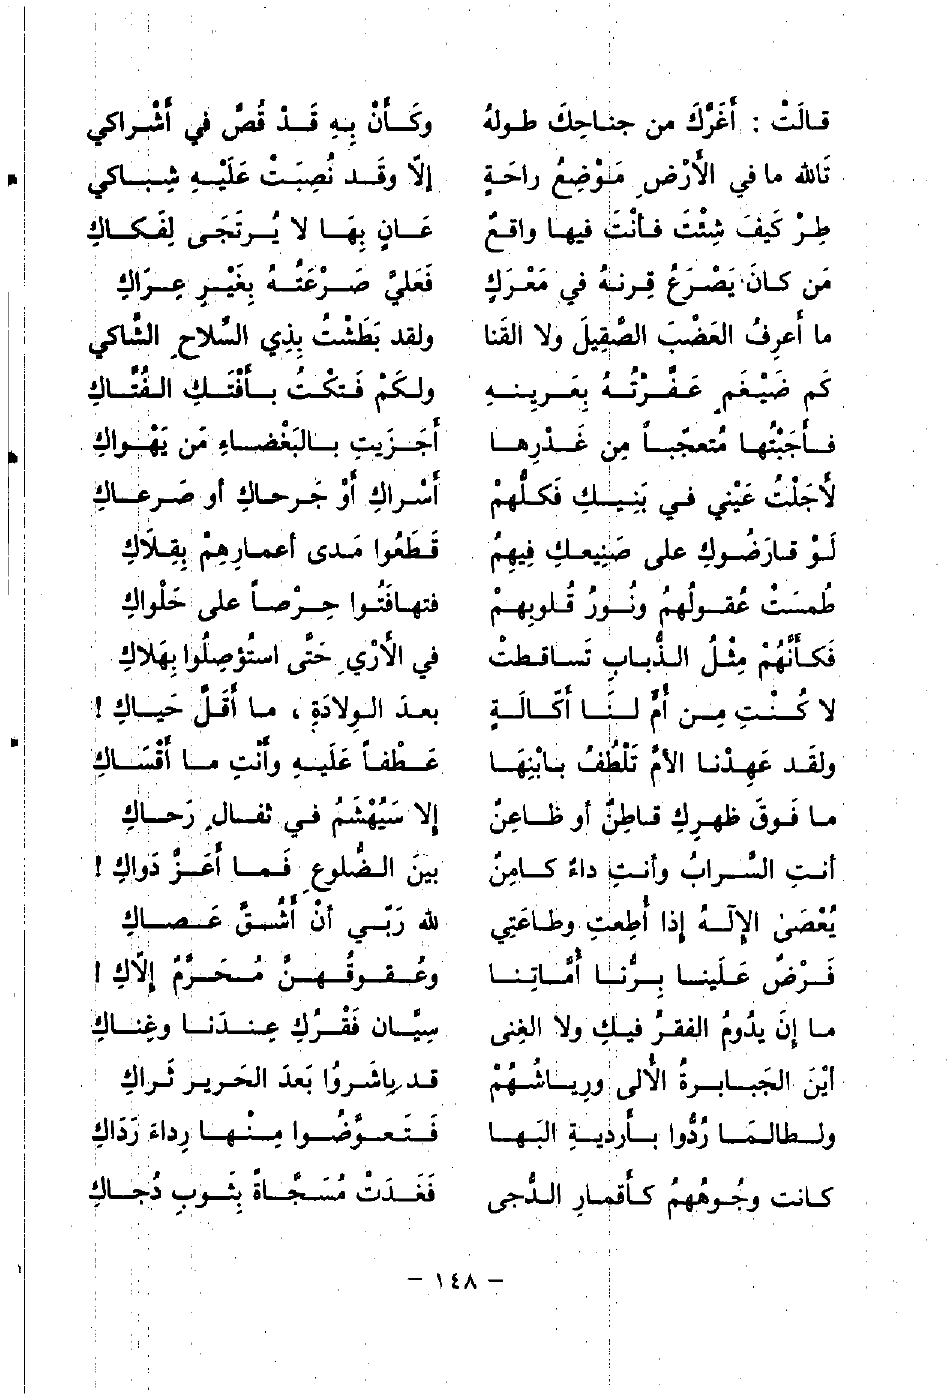 قالَتْ : أَغَرَّكَ من جناحِكَ طولهُ وكَأَنْ بِهِ قَدْ قُصَّ في أَشْراكي
تَالله ما في الأَرْضِ مَوْضِعُ راحَةٍ إلّا وقَد نُصِبَتْ عَلَيْهِ شِبـاكي
طِرْ كَيفَ شِئْتَ فأنْتَ فيها واقعٌ عَانٍ بِهَا لا يُرتَجَى لِفَكاكِ
مَن كانَ يَصْرَعُ قِرنهُ في مَعْرَكٍ فَعَليَّ صَرْعَتُهُ بِغَيْرِ عِرَاكِ
ما أعرِفُ العَضْبَ الصَّقِيلَ ولا القَنا ولقد بَطَشْتُ بِذِي السِّلاحِ الشَّاكي
كَم ضَيْغَمٍ عَفَّرْتُهُ بِعَرينِهِ ولكَمْ فَتكْتُ بأفْتَكِ الفُتَّاكِ
فأجَبْتُها مُتعجّباً مِن غَدْرِها أجَزَيتِ بالبَغْضاءِ مَن يَهْواكِ
لأجَلْتُ عَيْني في بَنِيكِ فَكلُّهمْ أسْراكِ أوْ جَرحاكِ أو صَرعاكِ
لَوْ قارَضُوكِ على صَنِيعكِ فِيهمُ قَطَعُوا مَدى أعمارِهِمْ بِقِلَاكِ
طُمسَتْ عُقولُهمُ ونُورُ قُلوبِهمْ فتهافَتُوا حِرْصاً على حَلْواكِ
فكأنَّهُمْ مِثْلُ الذُّبابِ تَساقطتْ في الأَرْيِ حَتَّى استُؤصِلُوا بِهَلاكِ
لا كُنْتِ مِن أمٍّ لنَا أكّالَةٍ بعدَ الوِلادَةِ ، ما أقَلَّ حَياكِ !
ولقَد عَهِدْنا الأمَّ تَلْطُفُ بابْنِهَا عَطْفاً عَلَيهِ وأنْتِ ما أقْسَاكِ
ما فَوقَ ظهرِكِ قاطِنٌ أو ظاعِنٌ إلا سَيُهْشَمُ في ثفالِ رَحاكِ
أنتِ السَّرابُ وأنتِ داءٌ كامِنٌ بينَ الضُّلوعِ فَما أعَزَّ دَواكِ !
يُعْصَىٰ الإلَهُ إذا أُطِعتِ وطاعَتِي لله رَبّي أنْ أشُقَّ عَصاكِ
فَرْضٌ عَلَينا بِرُّنا أمَّاتِنا وعُقوقُهنَّ مُحَرَّمٌ إلّاكِ !
ما إنَ يدُومُ الفقرُ فيكِ ولا الغِنى سِيَّان فَقْرُكِ عِندَنا وغِناكِ
أيْنَ الجَبابرةُ الأُلى ورِياشُهُمْ قد باشَروُا بَعدَ الحَرير ثَراكِ
ولطالمَا رُدُّوا بأردِيةِ البَها فَتَعوَّضُوا مِنْها رِداءَ رَدَاكِ
كانت وجُوهُهمُ كأقمارِ الدُّجى فَغَدَتْ مُسَجَّاةً بِثَوبِ دُجاكِ
– ١٤٨ –